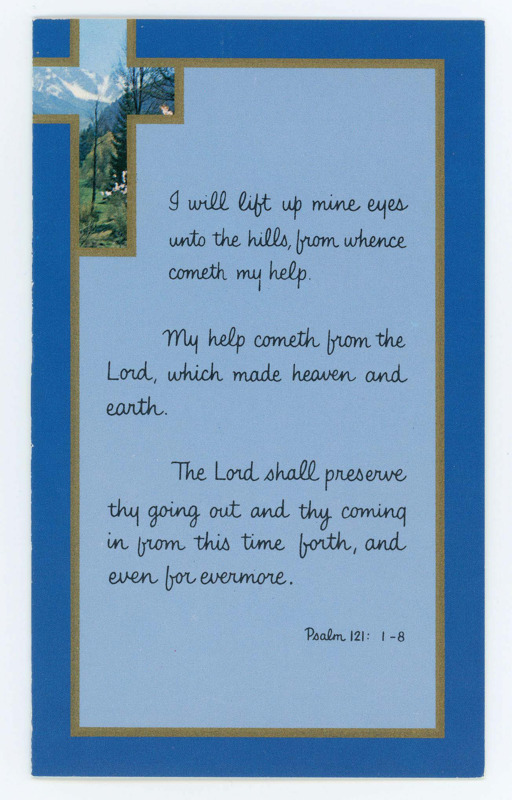 I will lift up mine eyes
unto the hills, from whence
cometh my help.
My help cometh from the
Lord, which made heaven and
earth.
The Lord shall preserve
thy going out and thy coming
in from this time forth, and
even for evermore.
Psalm 121: 1-8